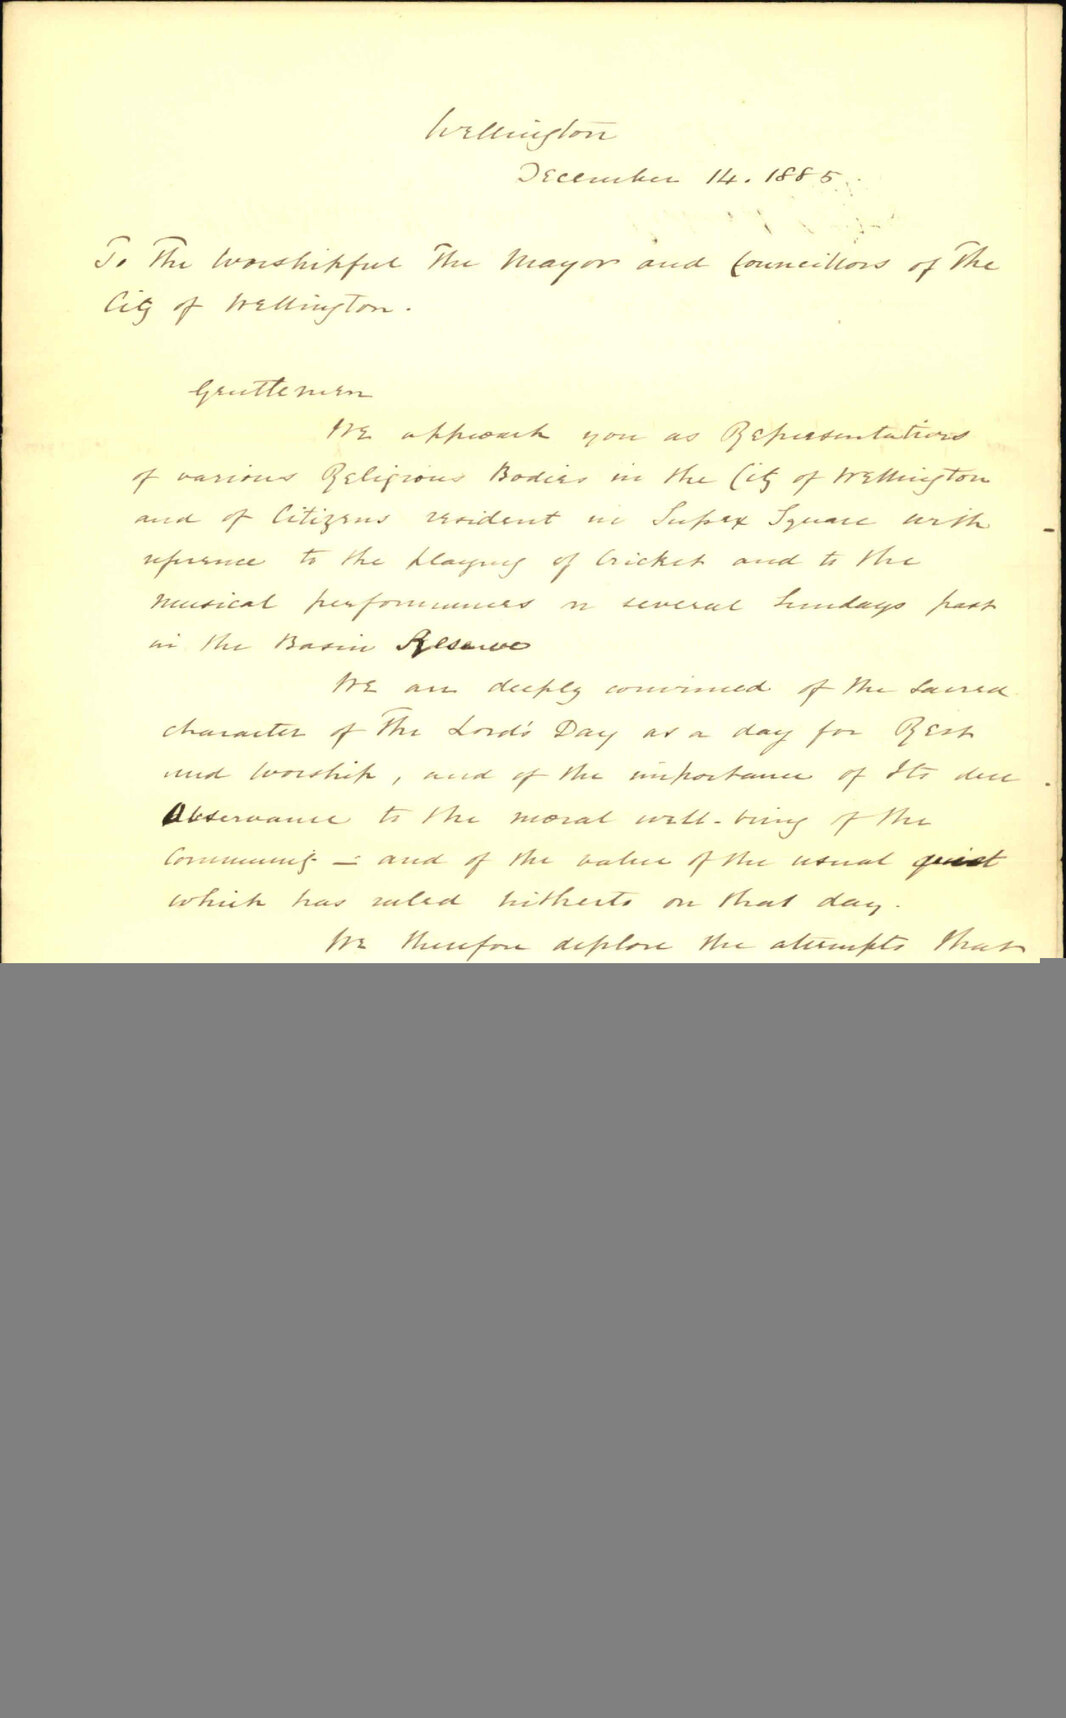 Wellington
December 14. 1885.
To The Worshipful The Mayor and Councillors of The
City of Wellington.
Gentlemen
We approach you as Representatives
of various Religious Bodies in the City of Wellington
and of Citizens resident in Sussex Square with
reference to the playing of Cricket and to the
musical performances on several Sundays past
in the Basin Reserve
We are deeply convinced of the sacred
character of The Lord's Day as a day for Rest
and Worship, and of the importance of Its due
Observance to the moral well-being of the
Community — and of the value of the usual quiet
which has ruled hitherto on that day.
We therefore deplore the attempts that